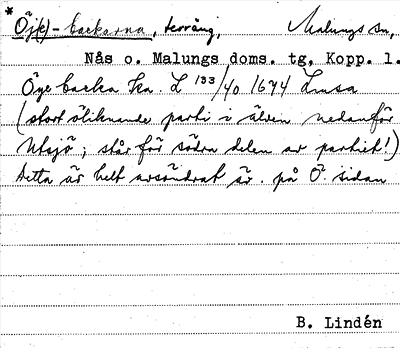 * Öj(e)-backarna, terräng, Malungs sn,
Nås o. Malungs doms. tg, Kopp. l.
Öye backa Ska. L 133/40 1674 Limsa
(stort öliknande parti i älven nedanför
Utsjö; står för södra delen av partiet!)
Detta är helt avsöndrat är. på Ö. sidan
B. Lindén